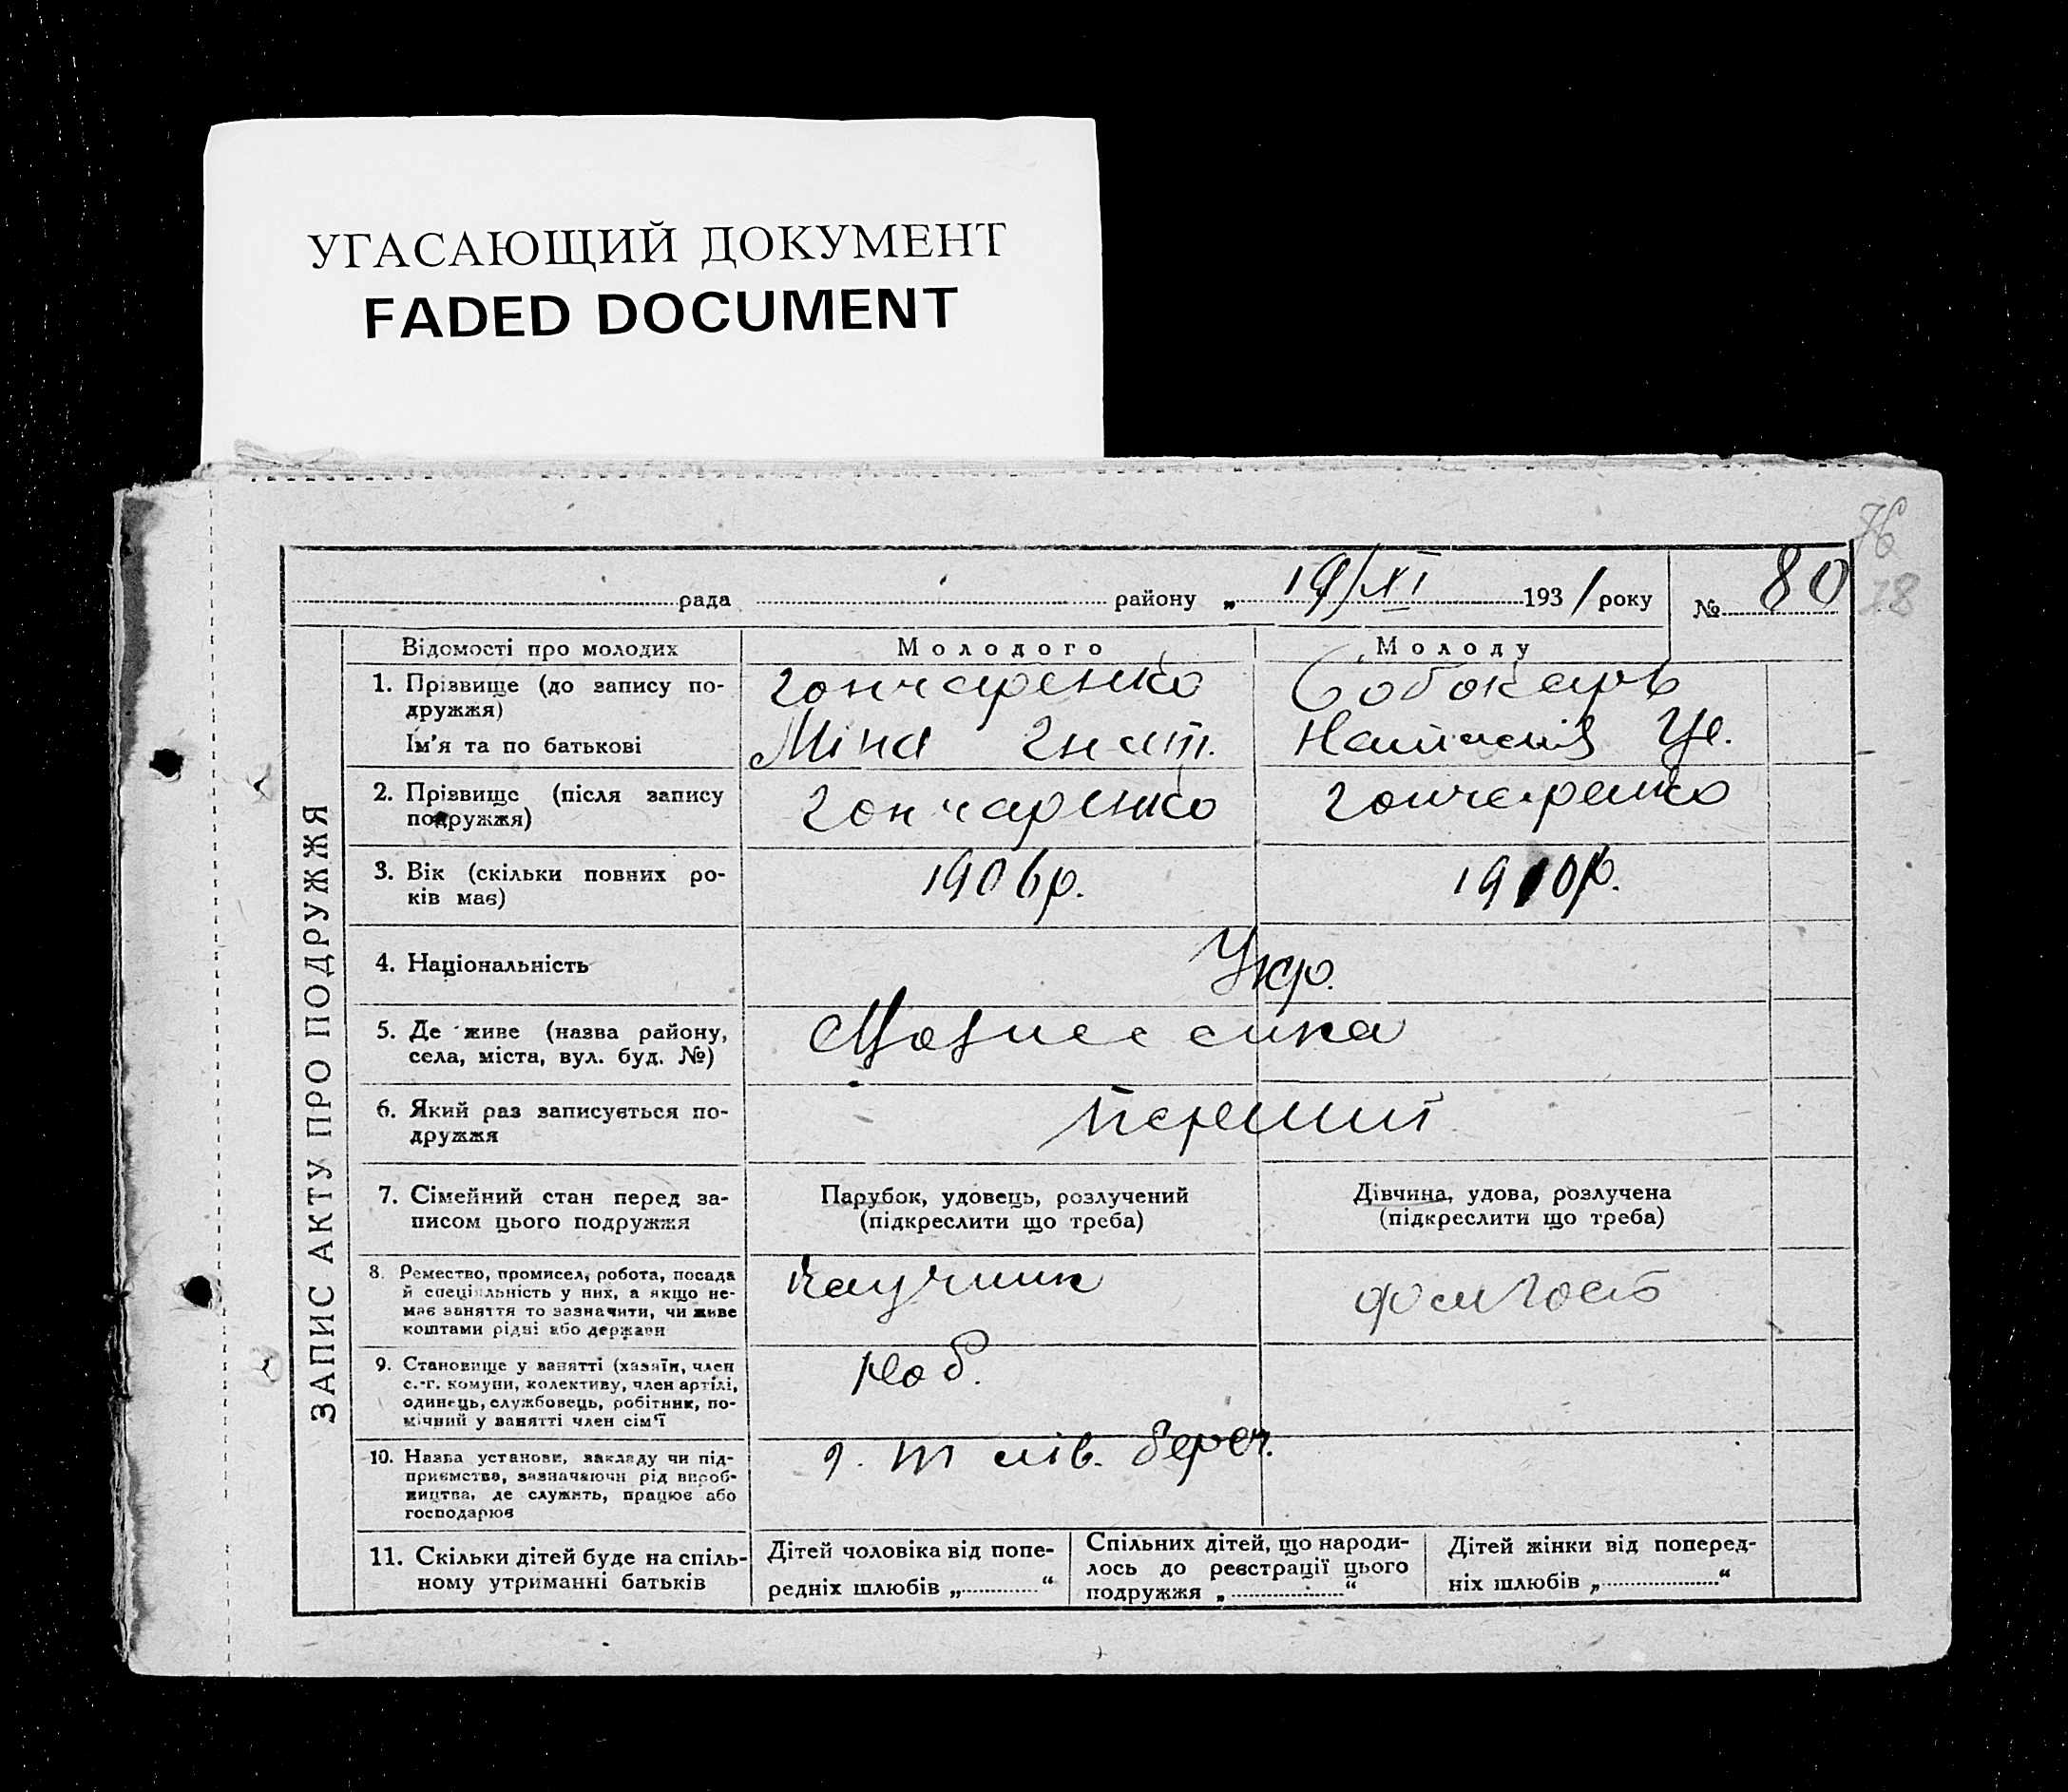 УГАСАЮЩИЙ ДОКУМЕНТ
FADED DOCUMENT
76
78
рада району „ 19/XI 1931 року № 80
ЗАПИС АКТУ ПРО ПОДРУЖЖЯ
Відомості про молодих Молодого Молоду
1. Прізвище (до запису по-
дружжя)
Гончаренко
Ім'я та по батькові
Міна Гнат.
2. Прізвище (після запису
подружжя)
Гончаренко Гончаренко
3. Вік (скільки повних ро-
ків має)
1906р. 1910р.
4. Національність
Укр.
5. Де живе (назва району,
села, міста, вул. буд. №)
Вознесенка
6. Який раз записується по-
дружжя
перший
7. Сімейний стан перед за-
писом цього подружжя
Парубок, удовець, розлучений
(підкреслити що треба)
Дівчина, удова, розлучена
(підкреслити що треба)
8. Ремество, промисел, робота, посада
й спеціяльність у них, а якщо не-
має заняття то зазначити, чи живе
коштами рідні або держави
9. Становище у занятті (хазяїн, член
с.-г. комуни, колективу, член артілі,
одинець, службовець, робітник, по-
мічний у занятті член сім'ї
роб.
10. Назва установи, закладу чи під-
приємства, зазначаючи рід вироб-
ництва, де служить, працює або
господарює
лів. берег.
11. Скільки дітей буде на спіль-
ному утриманні батьків
Дітей чоловіка від попе-
редніх шлюбів „ “
Спільних дітей, що народи-
лось до реєстрації цього
подружжя „ “
Дітей жінки від поперед-
ніх шлюбів „ “